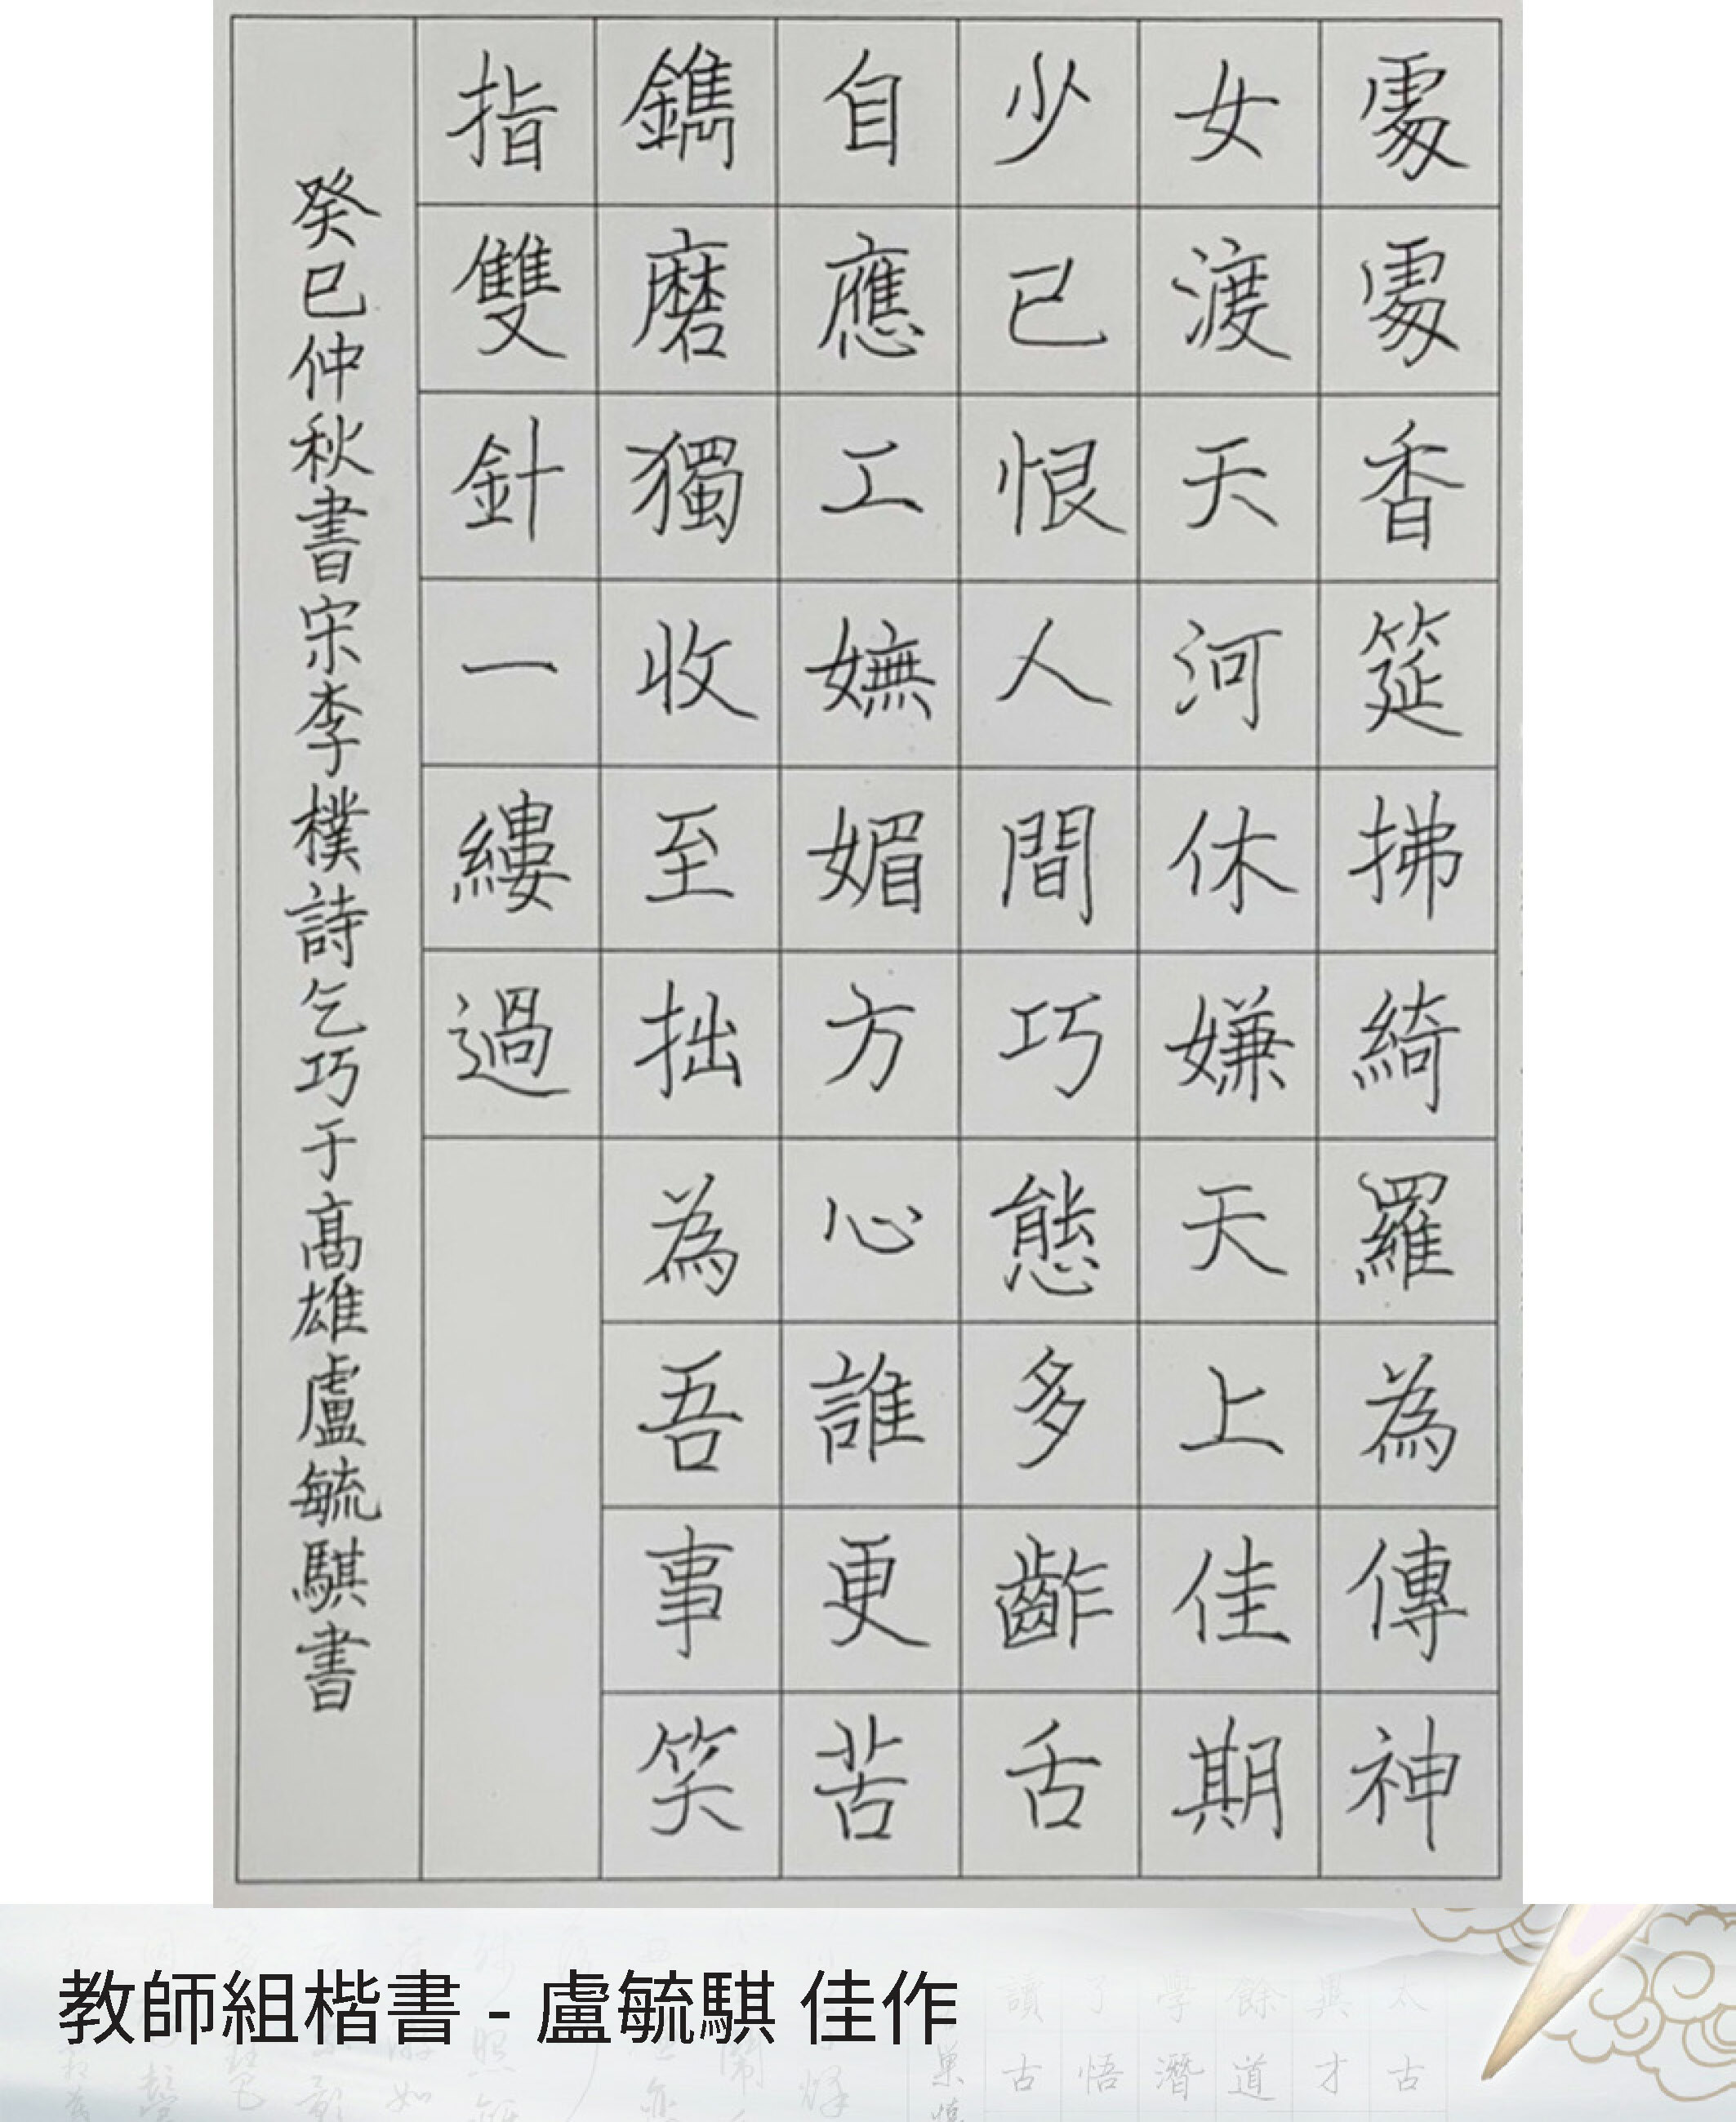 處處香筵拂綺羅為傳神
女渡天河休嫌天上佳期
少已恨人間巧態多齚舌
自應工嫵媚方心誰更苦
鐫磨獨收至拙為吾事笑
指雙針一縷過
癸巳仲秋書宋李樸詩乞巧于高雄盧毓騏書
教師組楷書 - 盧毓騏 佳作